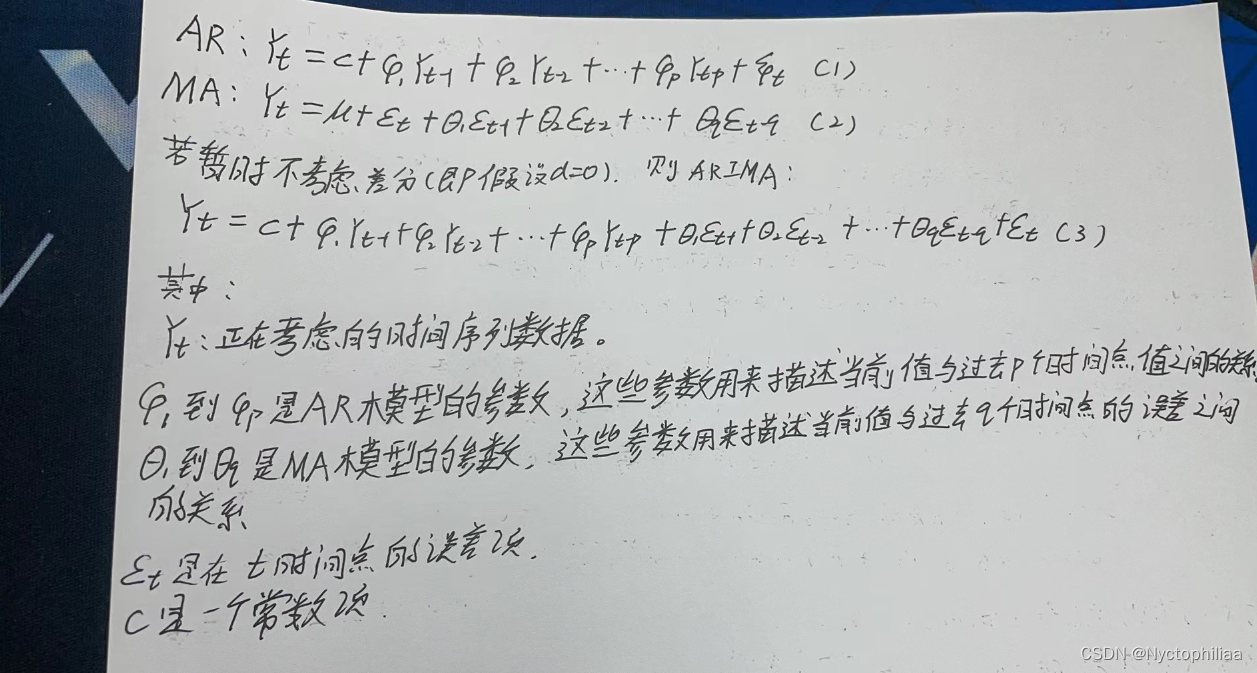 AR: Yt = c + φ₁Yt-1 + φ₂Yt-2 + … + φpYt-p + ξt (1)
MA: Yt = μ + εt + θ₁εt-1 + θ₂εt-2 + … + θqεt-q (2)
若暂时不考虑差分(即假设d=0). 则ARIMA:
Yt = c + φ₁Yt-1 + φ₂Yt-2 + … + φpYt-p + θ₁εt-1 + θ₂εt-2 + … + θqεt-q + εt (3)
其中:
Yt: 正在考虑的时间序列数据。
φ₁到φp是AR模型的参数, 这些参数用来描述当前值与过去p个时间点值之间的关系
θ₁到θq是MA模型的参数, 这些参数用来描述当前值与过去q个时间点的误差之间
的关系
εt是在t时间点的误差项.
C是一个常数项.
CSDN @Nyctophiliaa